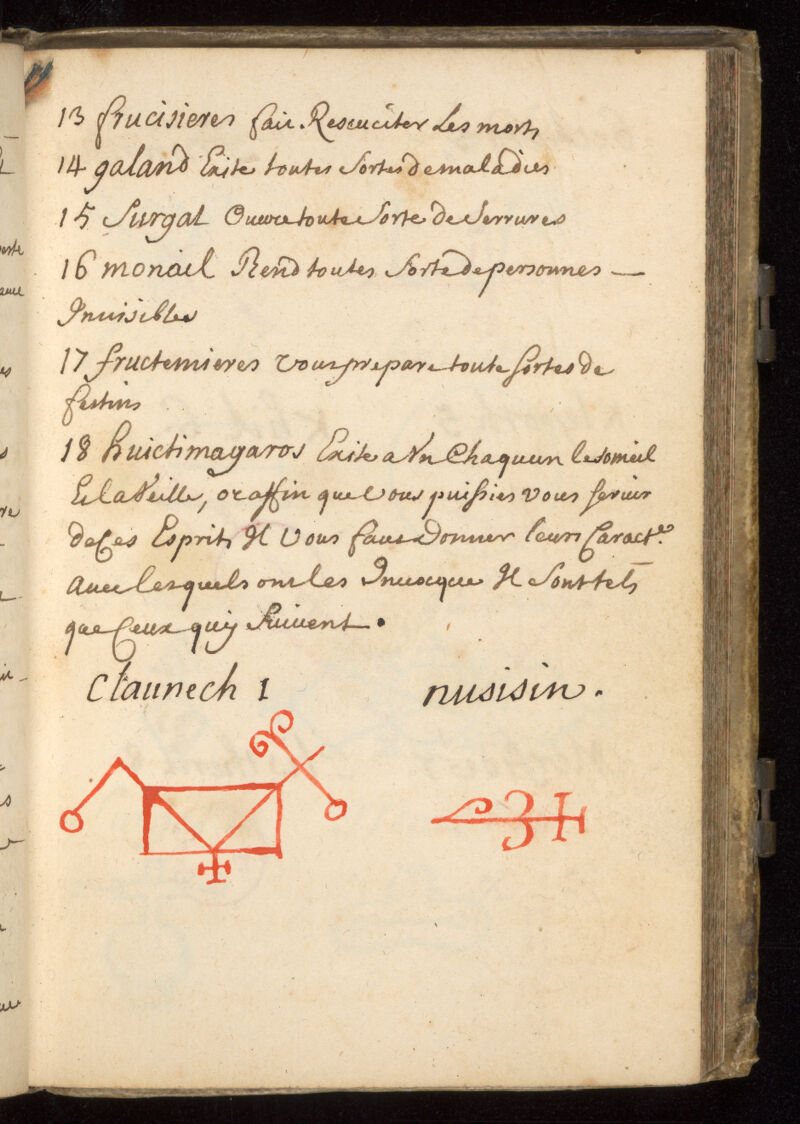 13 frucisieres fait Resuciter Les morts
14 galand Exite toutes Sortes de maladies
15 Surgat Ouvre toute Sorte de Serrures
16 monail Rend toutes Sorte de personnes —
Invisibles
17 fructemieres vous prepare toute Sortes de
festins
18 huictimagaros Exite a Vn Chaqueun le someil
Et la Veille, or affin que Vous puissies vous servir
de Ces Esprits Il Vous faut Donner leurs Caract.es
avec lesquels on les Invocque Il Sont tels
que Ceux quy Suivent .
Claunech 1 nusisin .